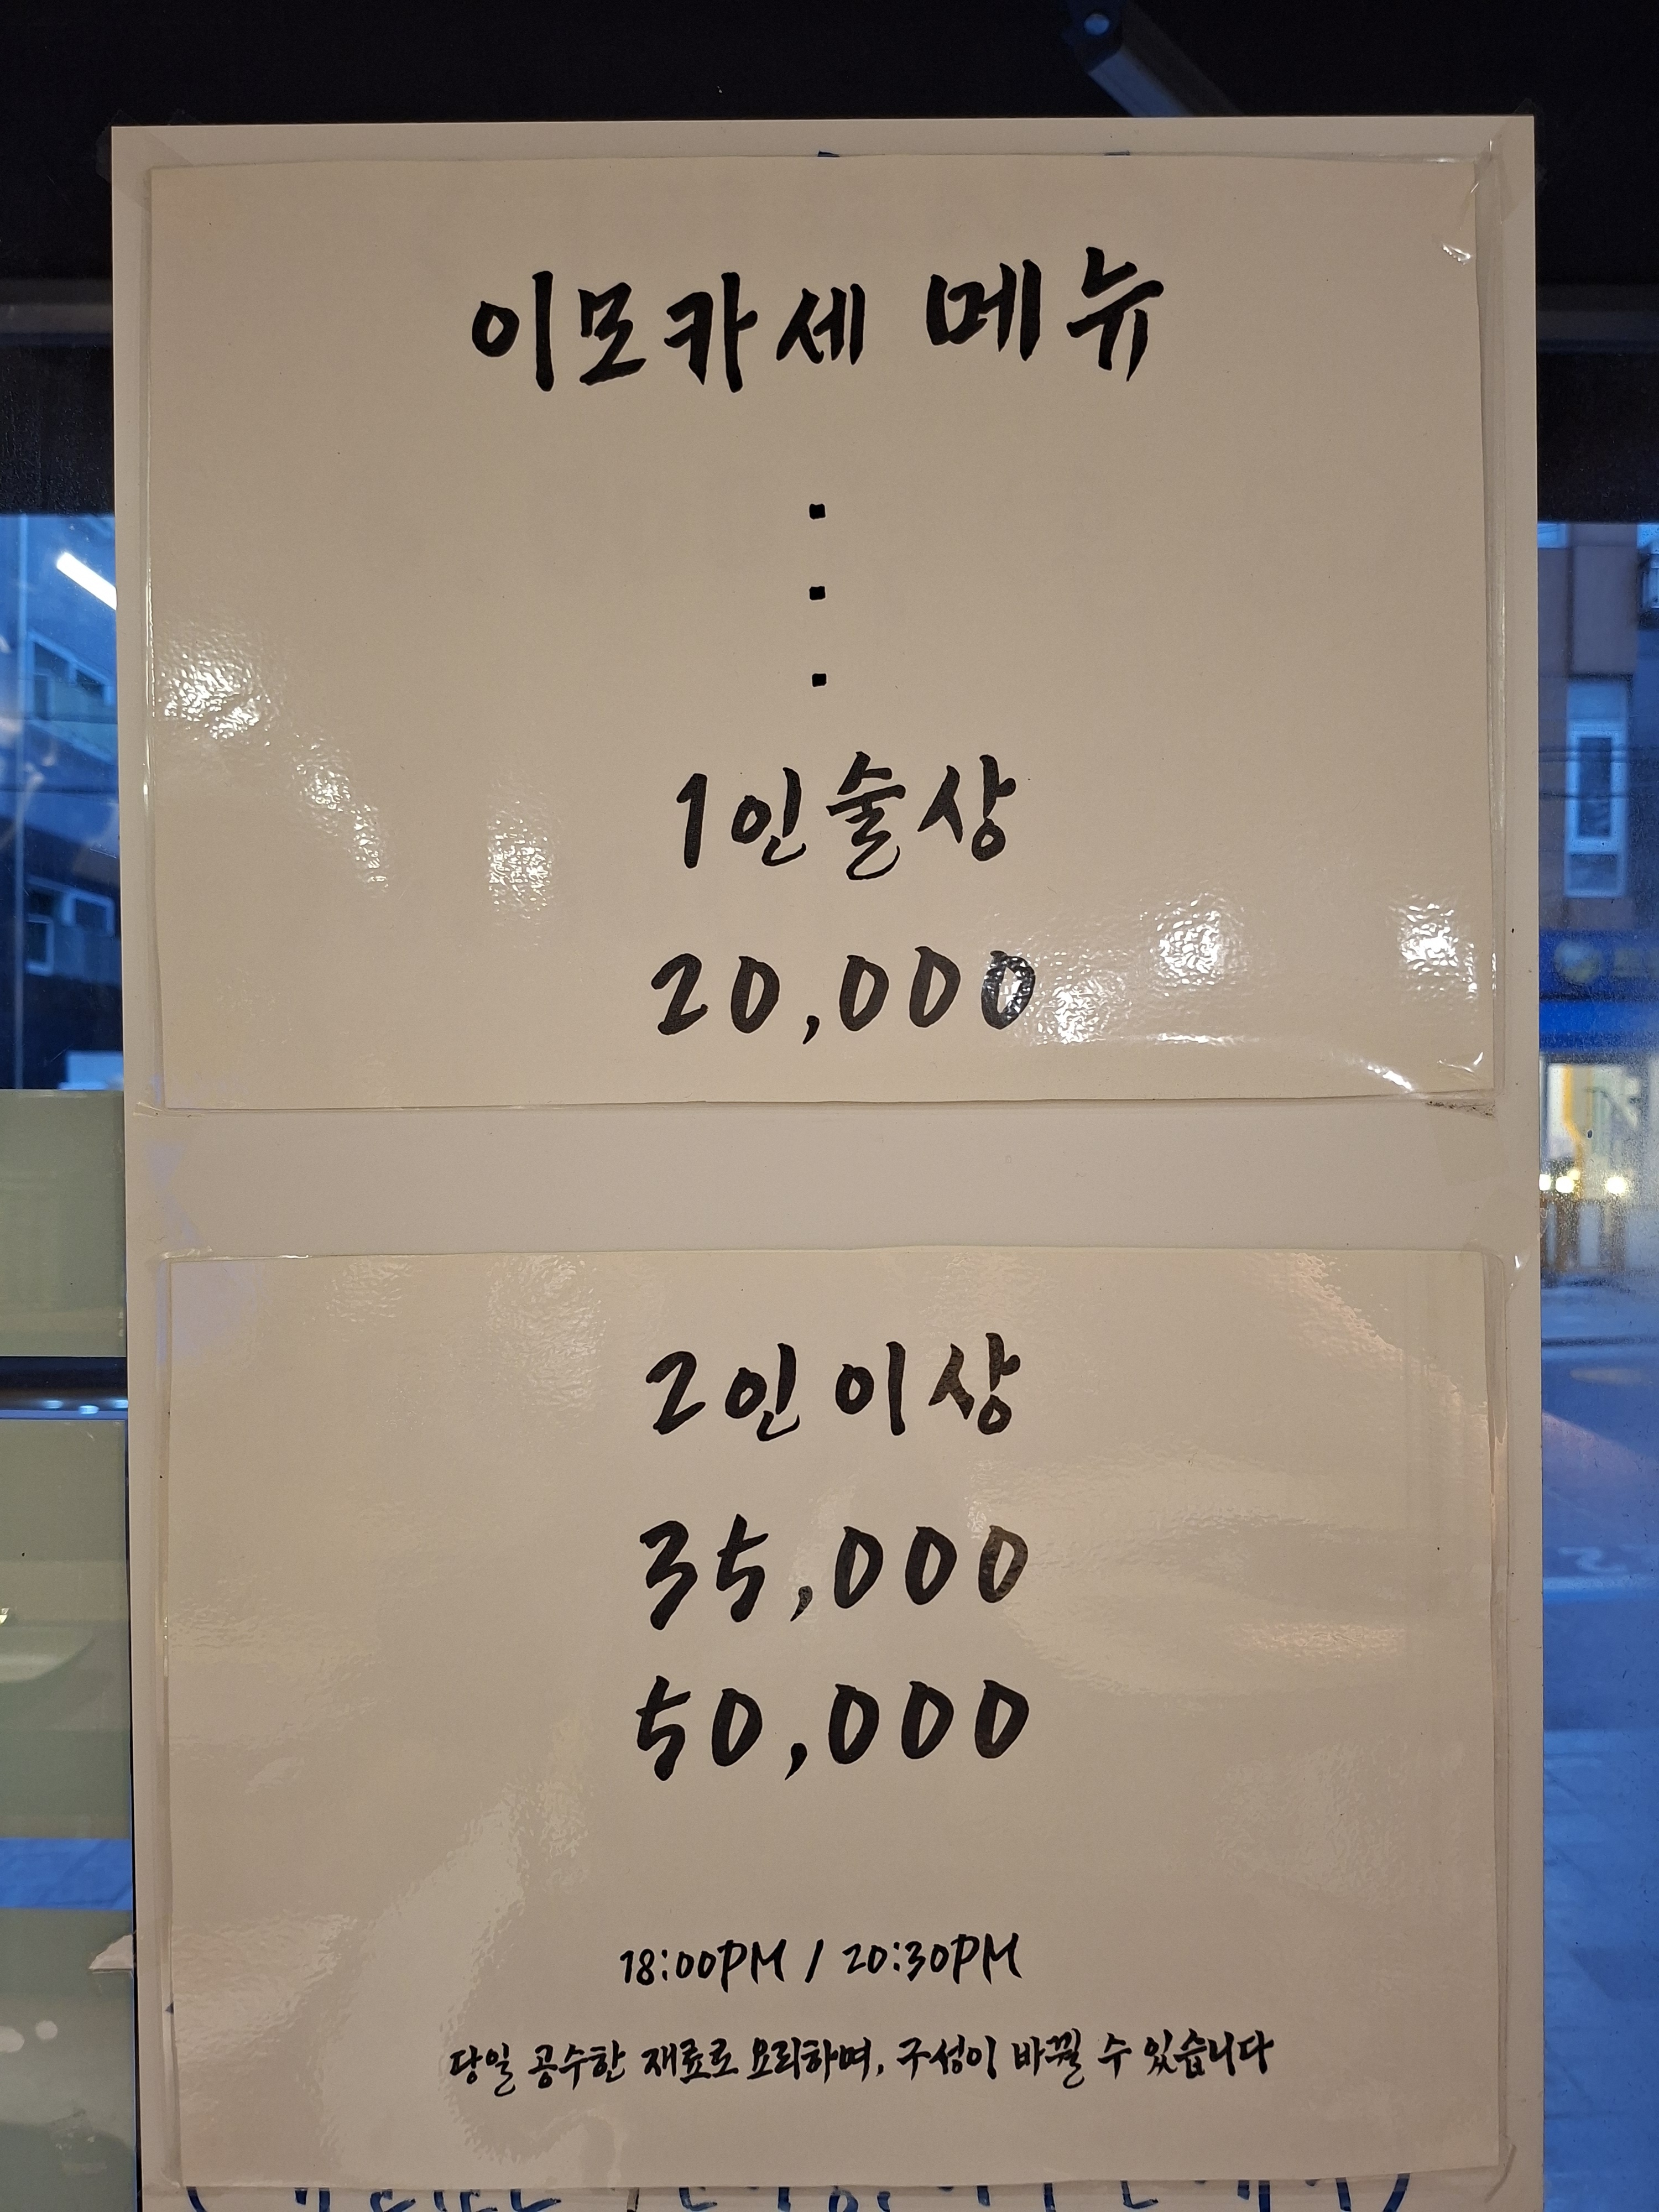 이모카세 메뉴
1인술상
20,000
2인이상
35,000
50,000
18:00PM / 20:30PM
당일 공수한 재료로 요리하며, 구성이 바뀔 수 있습니다